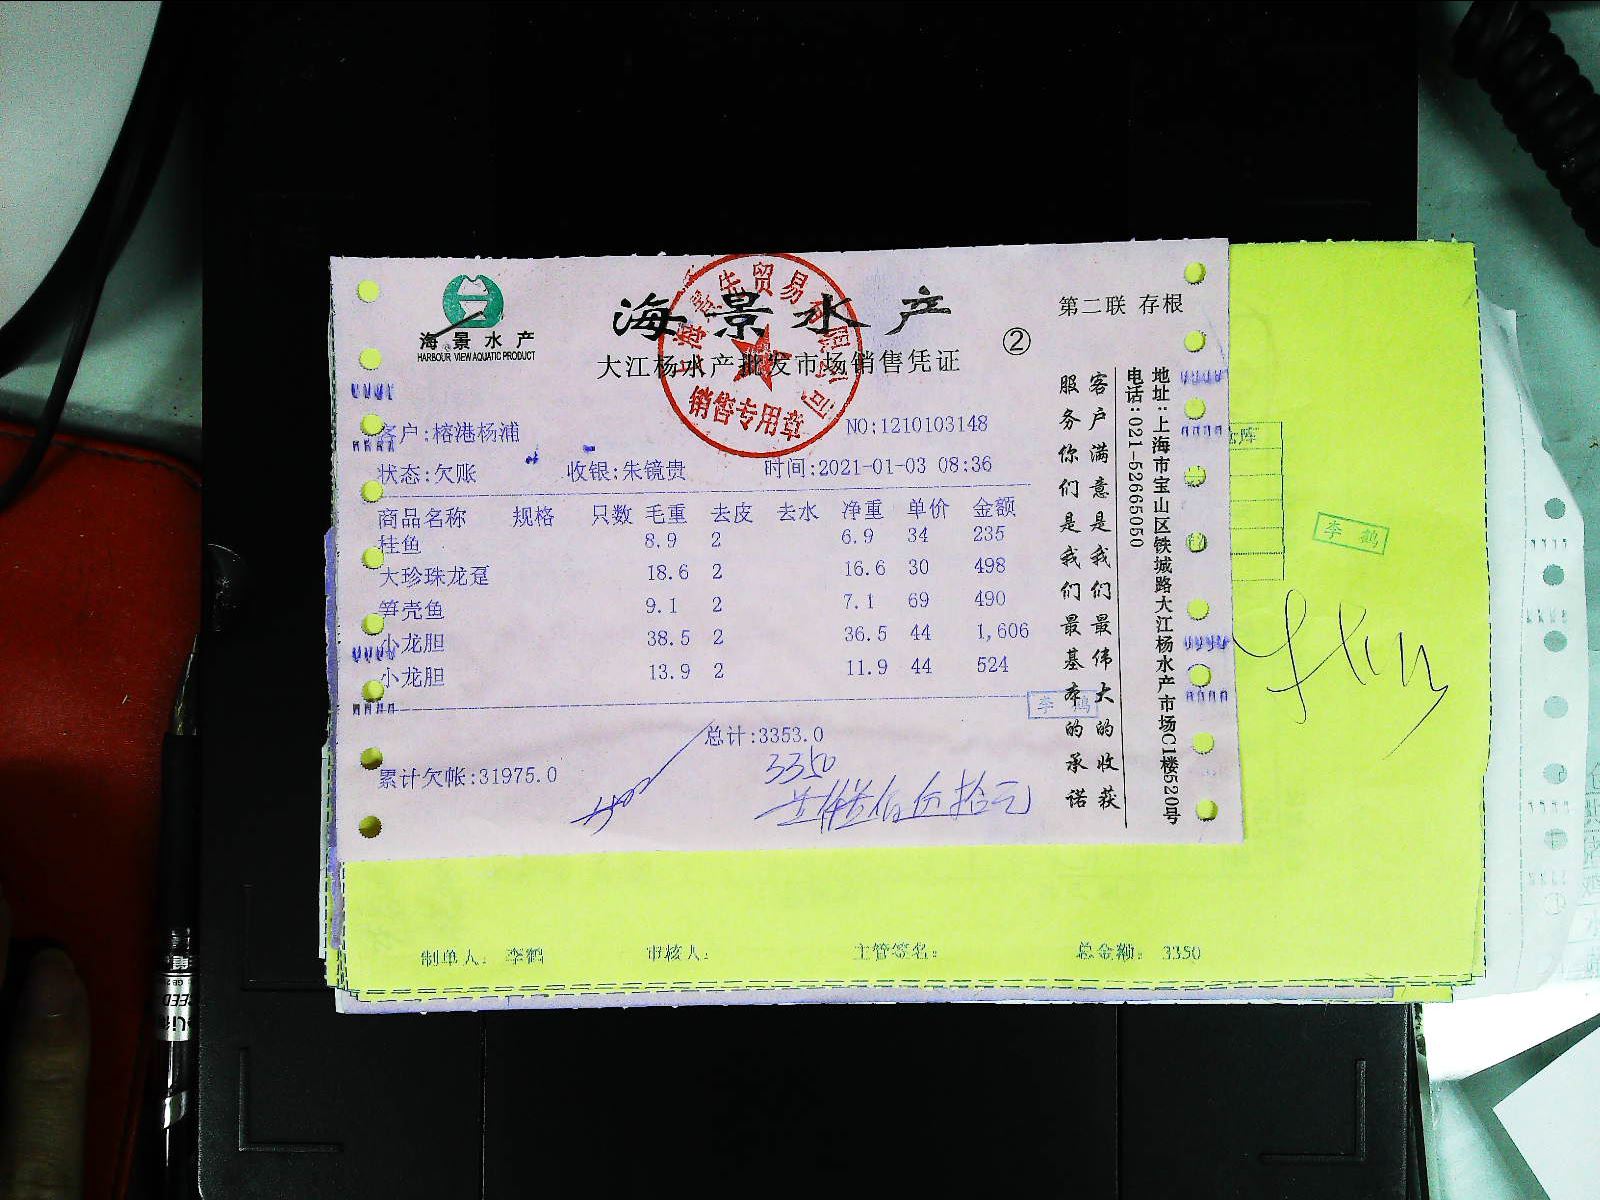 海景水产
HARBOUR VIEW AQUATIC PRODUCT
海景水产
大江杨水产批发市场销售凭证
②
第二联 存根
贸易
销售专用章
客户:榕港杨浦
NO:1210103148
状态:欠账 收银:朱镜贵 时间:2021-01-03 08:36
商品名称 规格 只数 毛重 去皮 去水 净重 单价 金额
桂鱼 8.9 2 6.9 34 235
大珍珠龙趸 18.6 2 16.6 30 498
笋壳鱼 9.1 2 7.1 69 490
小龙胆 38.5 2 36.5 44 1,606
小龙胆 13.9 2 11.9 44 524
李鹤
总计:3353.0
累计欠帐:31975.0
3350
客户满意是我们最伟大的收获
服务你们是我们最基本的承诺
地址:上海市宝山区铁城路大江杨水产市场C1楼520号
电话:021-52665050
李鹤
制单人: 李鹤 审核人: 主管签名: 总金额: 3350